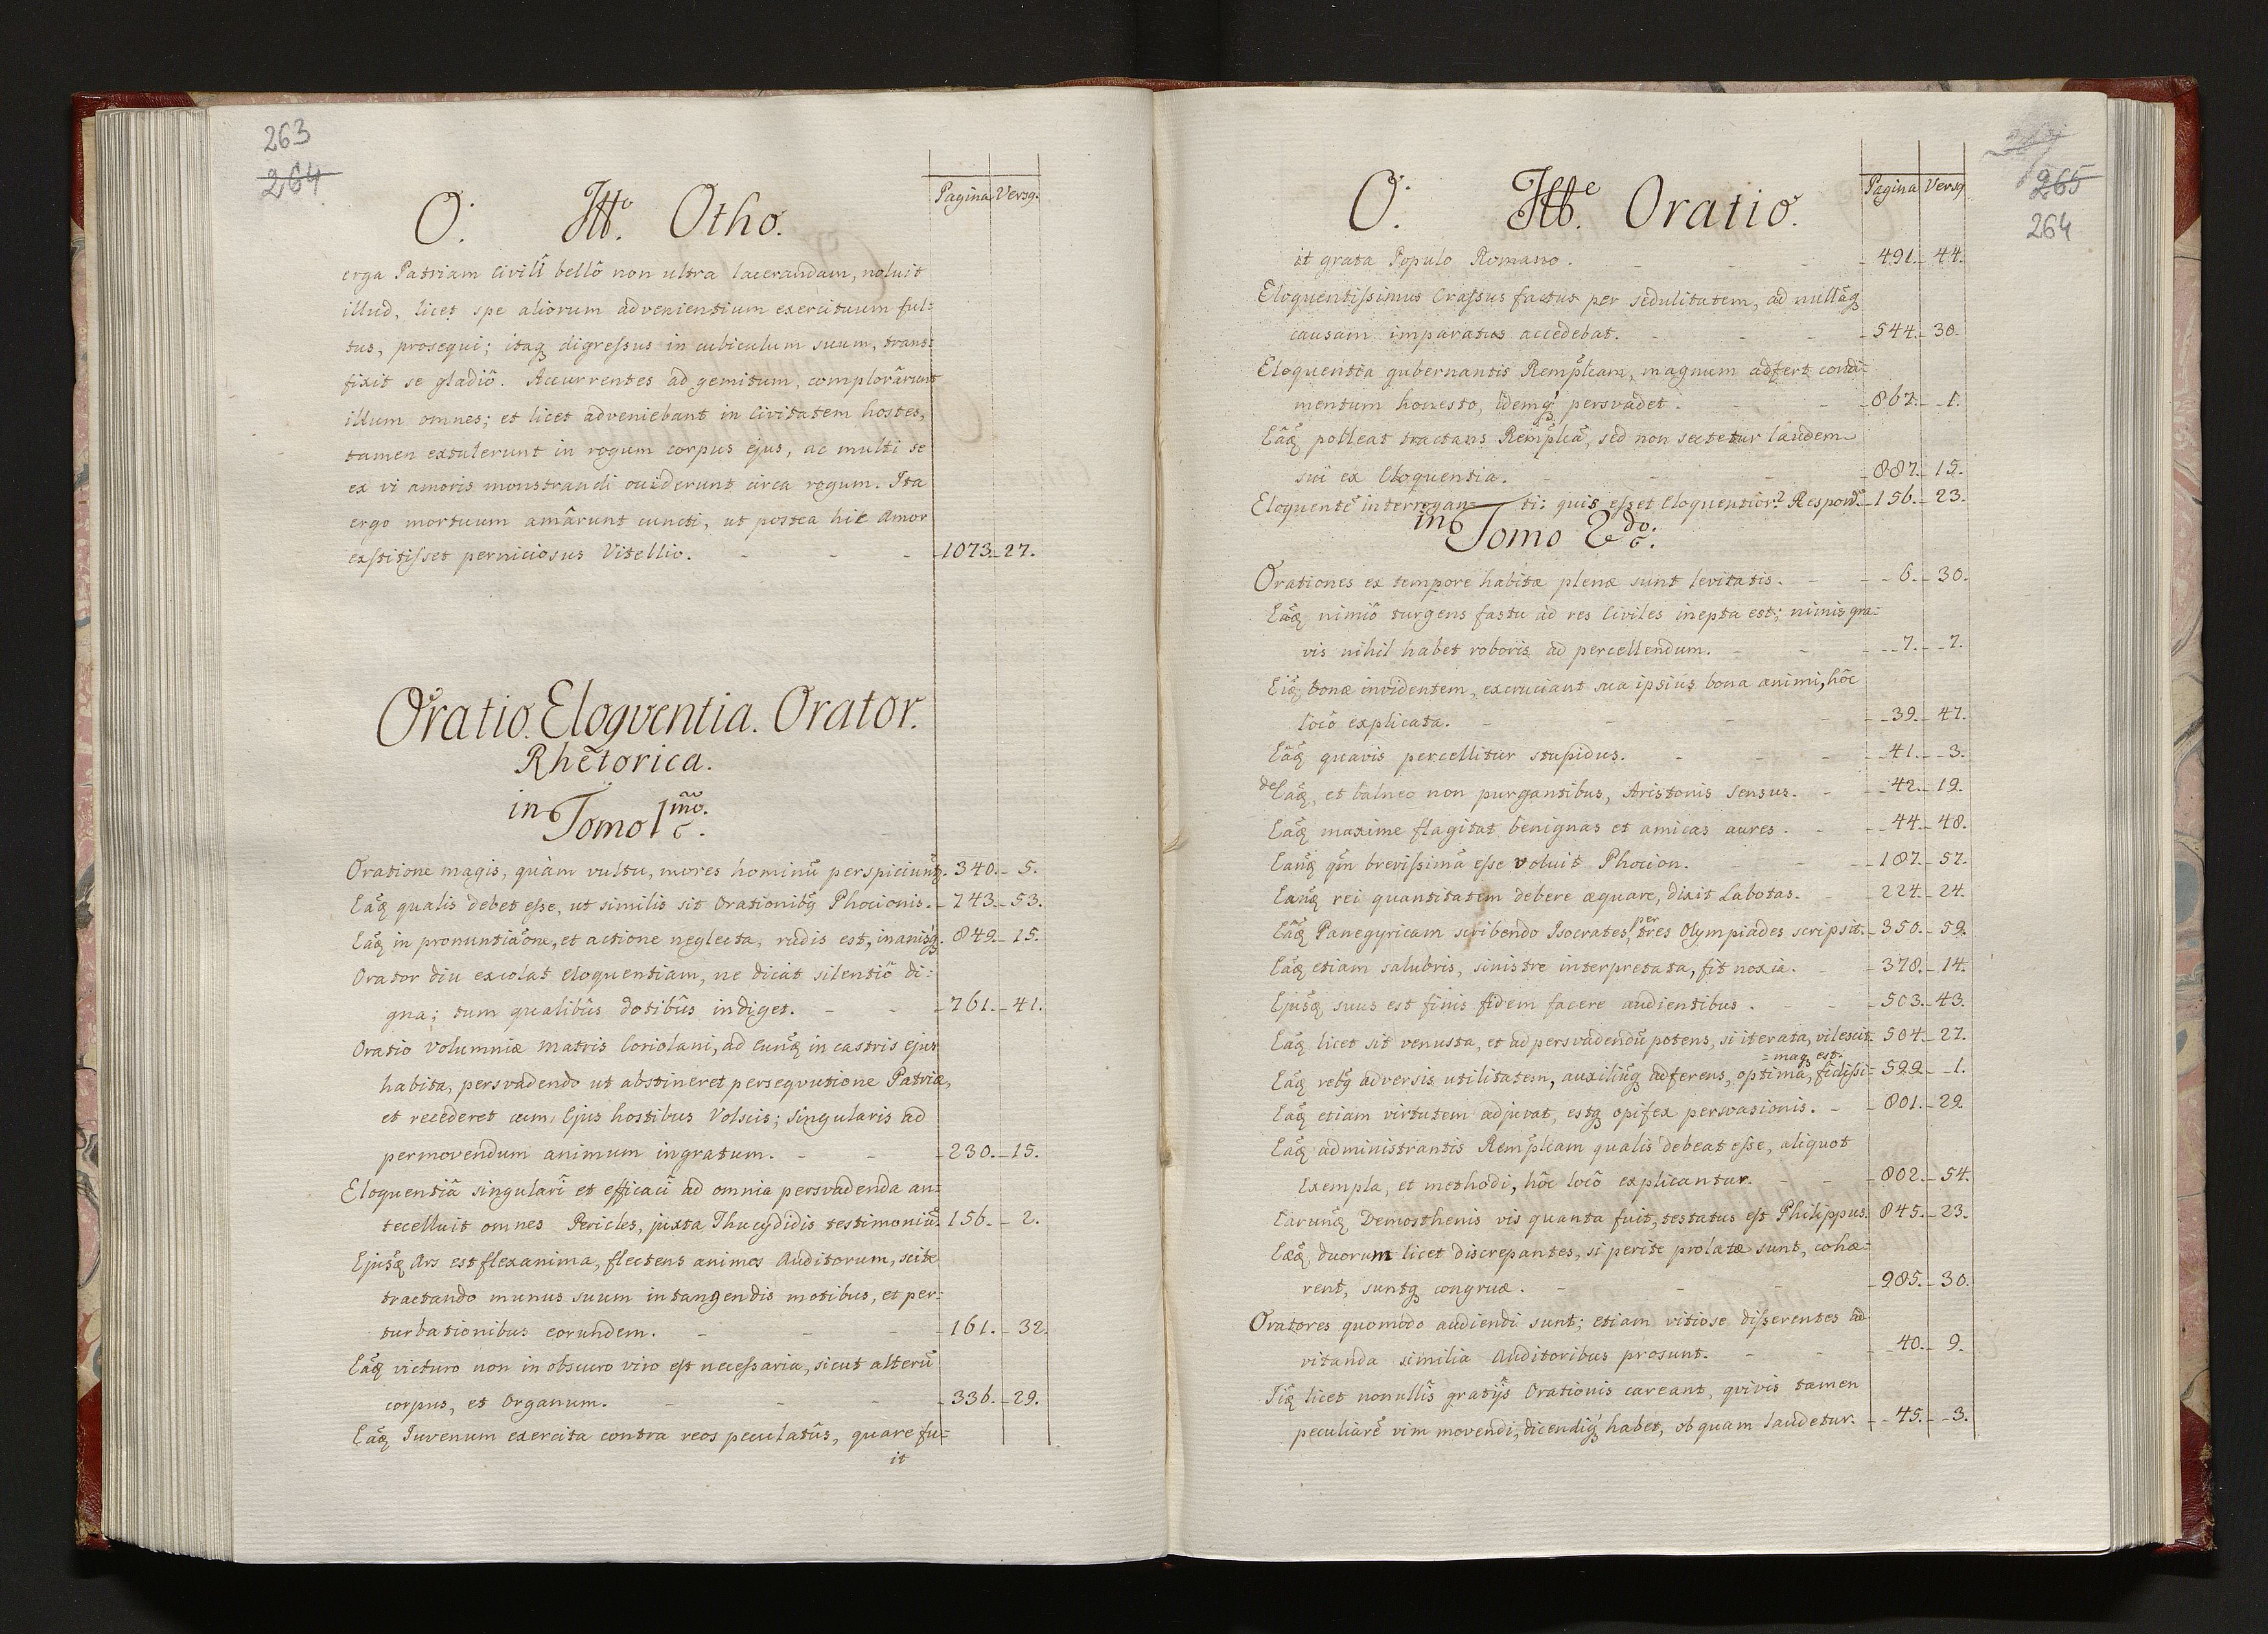 263
264
Pagina Versq.
O. Itto. Otho.
erga Patriam civili bellô non ultra lacerandam, noluit
illud, licet spe aliorum advenientium exercituum ful=
tus, prosequi; itaq digreſsus in cubiculum suum, trans=
fixit se gladiô. Accurrentes ad gemitum, complorârunt
illum omnes; et licet adveniebant in Civitatem hostes,
tamen extulerunt in rogum corpus ejus, ac multi se
ex vi amoris monstrandi occiderunt circa rogum. Ita
ergo mortuum amârunt cuncti, ut postea hic Amor
exſtitiſset perniciosus Vitellio. - - - 1073. - 27.
Oratio. Eloqventia. Orator.
Rhetorica.
in Tomo 1mo.
Oratione magis, quàm vultu, mores hominũ perspiciunt. 340. - 5.
Eaq qualis debet eſse, ut similis sit Orationibq Phocionis. - 743. - 53.
Eaq in pronuntiãone, et actione neglecta, rudis est, inanisq. 849. - 15.
Orator diu excolat eloquentiam, ne dicat silentiô di=
gna; tum qualibûs dotibûs indiget. - - - 761. - 41.
Oratio Volumniæ matris Coriolani, ad eunq in castris ejus
habita, persvadendo ut abstineret perseqvutione Patriæ,
et recederet cum Ejus hostibus Volscis; singularis ad
permovendum animum ingratum. - - - 230. - 15.
Eloquentiâ singulari et efficaci ad omnia persvadenda an=
tecelluit omnes Pericles, juxta Thucydidis testimoniũ. 156. - 2.
Ejusq Ars est flexanima, flectens animos Auditorum, scite
tractando munus suum in tangendis motibus, et per=
turbationibus eorundem. - - - 161. - 32.
Eaq victuro non in obscuro viro eſt neceſsaria, sicut alterũ
corpus, et Organum. - - - 336. - 29.
Eaq Juvenum exercita contra reos peculatûs, quare fu=
it
265
264
Pagina Versq
O. Ittbe. Oratio.
it grata Populo Romano. - - - 491. - 44.
Eloquentiſsimus Craſsus factus per sedulitatem, ad nullãq
causam imparatus accedebat. - - - 544. - 30.
Eloquentia gubernantis Remplcam, magnum adfert condi=
mentum honesto, idemq persvadet. - - - 867. - 1.
Eaq polleat tractans Remplcã, sed non sectetur laudem
sui ex Eloquentia. - - - 887. - 15.
Eloquentẽ interrogan= ti: quis eſset eloquentior? Respond. - 156. - 23.
in Tomo 2do.
Orationes ex tempore habitæ plenæ sunt levitatis. - - 6. - 30.
Eaq nimiô turgens fastu ad res Civiles inepta est; nimis gra=
vis nihil habet roboris ad percellendum. - - - 7. - 7.
Eiq bonæ invidentem, excruciant sua ipsius bona animi, hôc
locô explicata. - - - 39. - 47.
Eaq quavis percellitur stupidus. - - - 41. - 3.
de Eaq, et balneo non purgantibus, Aristonis Sensus. - - 42. - 19.
Eaq maxime flagitat benignas et amicas aures. - - 44. - 48.
Eanq qm breviſsimã eſse voluit Phocion. - - - 187. - 57.
Eanq rei quantitatem debere æquare, dixit Labotas. - - 224. - 24.
Eaq Panegyricam scribendo Isocrates, per tres Olympiades scripsit. - 350. - 59.
Eaq etiam salubris, sinistre interpretata, fit noxia. - - 378. - 14.
Ejusq suus est finis fidem facere audientibus. - - - 503. - 43.
Eaq licet sit venusta, et ad persvadendũ potens, si iterata, vilescit. 504. - 27.
= maq est.
Eaq rebq adversis utilitatem, auxiliũq adferens, optima, fidiſsi= 599. - 1.
Eaq etiam virtutem adjuvat, estq opifex persvasionis. - - 801. - 29
Eaq administrantis Remplcam qualis debeat eſse, aliquot
Exempla, et methodi, hôc locô explicantur. - - - 802. - 54.
Earunq Demosthenis vis quanta fuit, testatus eſt Philippus. 845. - 23.
Eæq duorum licet discrepantes, si perite prolatæ sunt, cohæ=
rent, suntq congruæ. - - - 985. - 30.
Oratores quomodo audiendi sunt; etiam vitiose diſserentes ad
vitanda similia Auditoribus prosunt. - - - 40. - 9.
Iiq licet nonullis gratijs Orationis careant, qvivis tamen
peculiarẽ vim movendi, dicendiq habet, ob quam laudetur. - - 45. - 3.